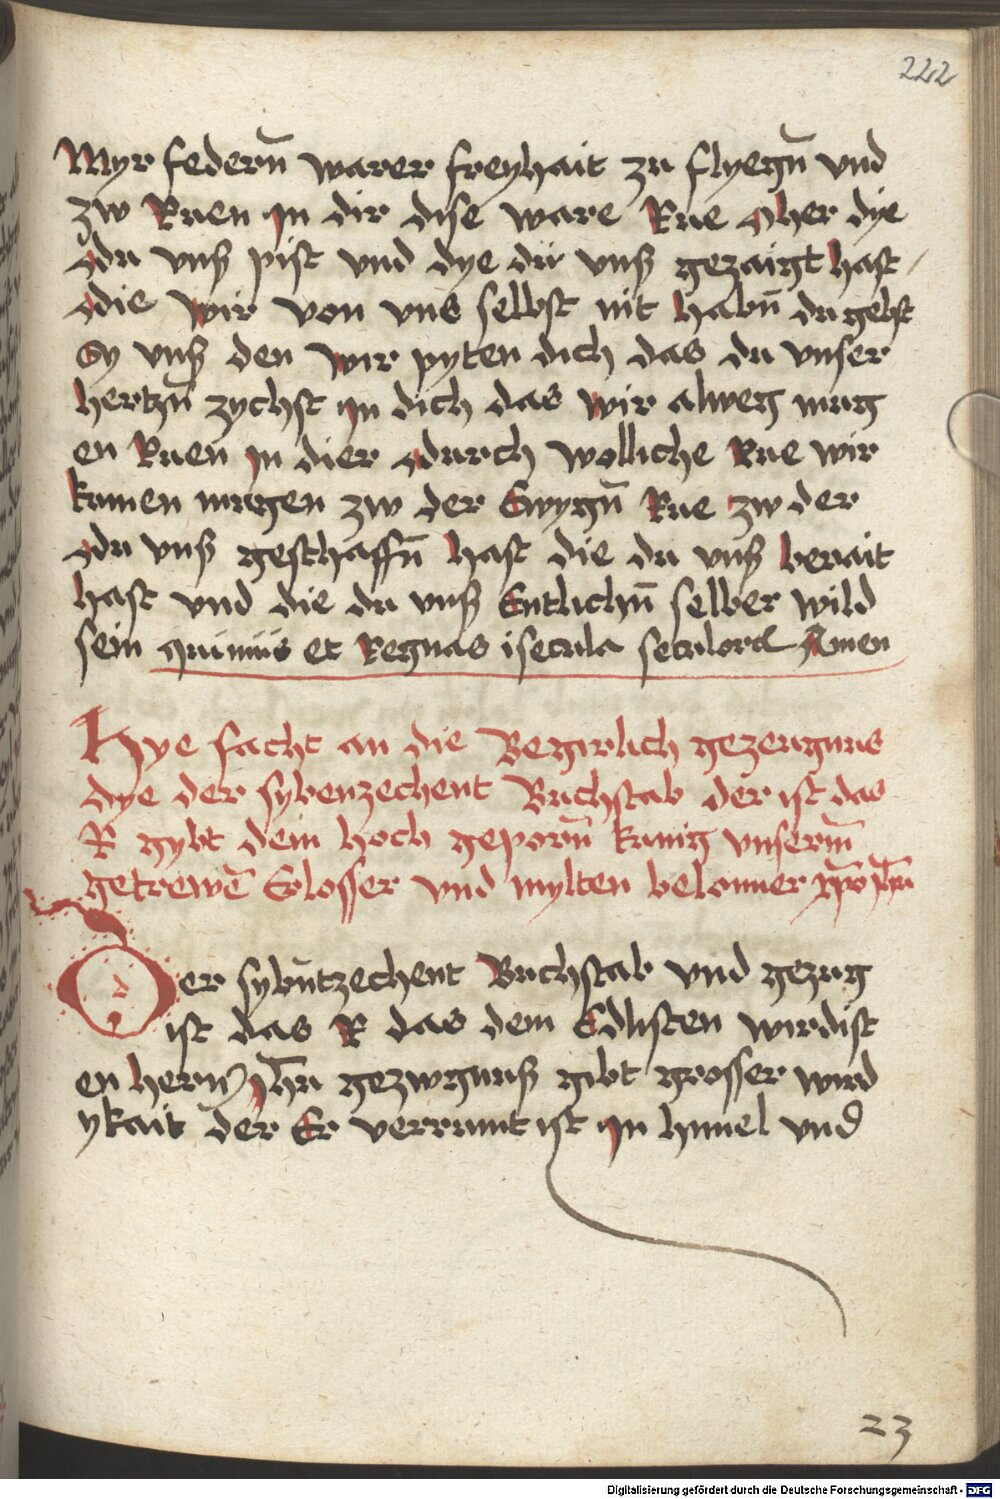 222
Myr federn̄ warer freyhait zu flyegn̄ vnd
zw Ruen In dir dise ware Rue O her dye
du vnß pist vnd dye du vnß gezaigt hast /
die wir von vns selbst nit habn̄ du gebst
Sy vnß den wir pyten dich das du vnser
hertzn̄ zychst in dich das wir alweg mug
en Ruen in dier durch wolliche Rue wir
kumen mugen zw der Ewygn̄ Rue zw der
du vnß geschaffn̄ hast die du vnß berait
hast vnd die du vnß Entlichn̄ selber wild
sein et Regnas isecula Amen
Hye facht an die Begirlich gezeugnus
dye der sybenzechent Buchstab der ist das
R gybt dem hoch geporn̄ kunig vnserm̄
getrewē Erlosser vnd mylten belonner
Der sybūtzechent Buchstab vnd gezug
ist das R das dem Edlisten wirdist
en hern Jh̄u gezwgnuß gibt grosser wird
ykait der Er verrumt ist in himel vnd
23
Digitalisierung gefördert durch die Deutsche Forschungsgemeinschaft - DFG